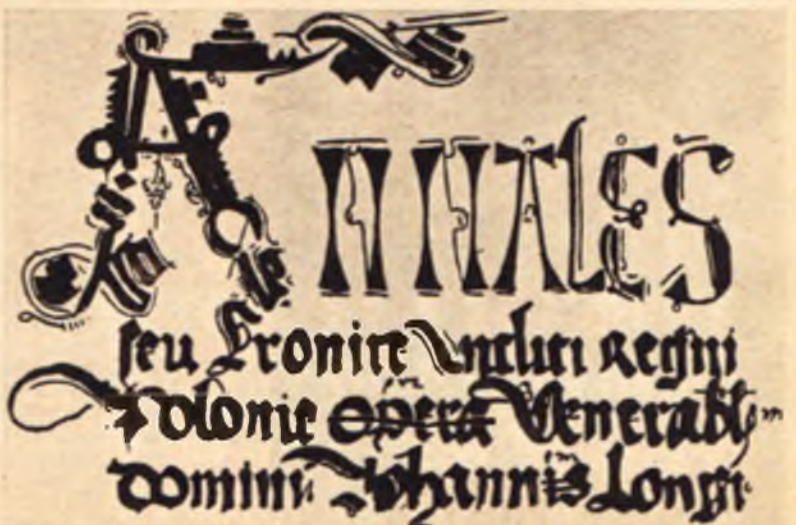 ANNALES
seu Cronice Incliti regni
Polonie opera Venerabil
domini Johannis Longi